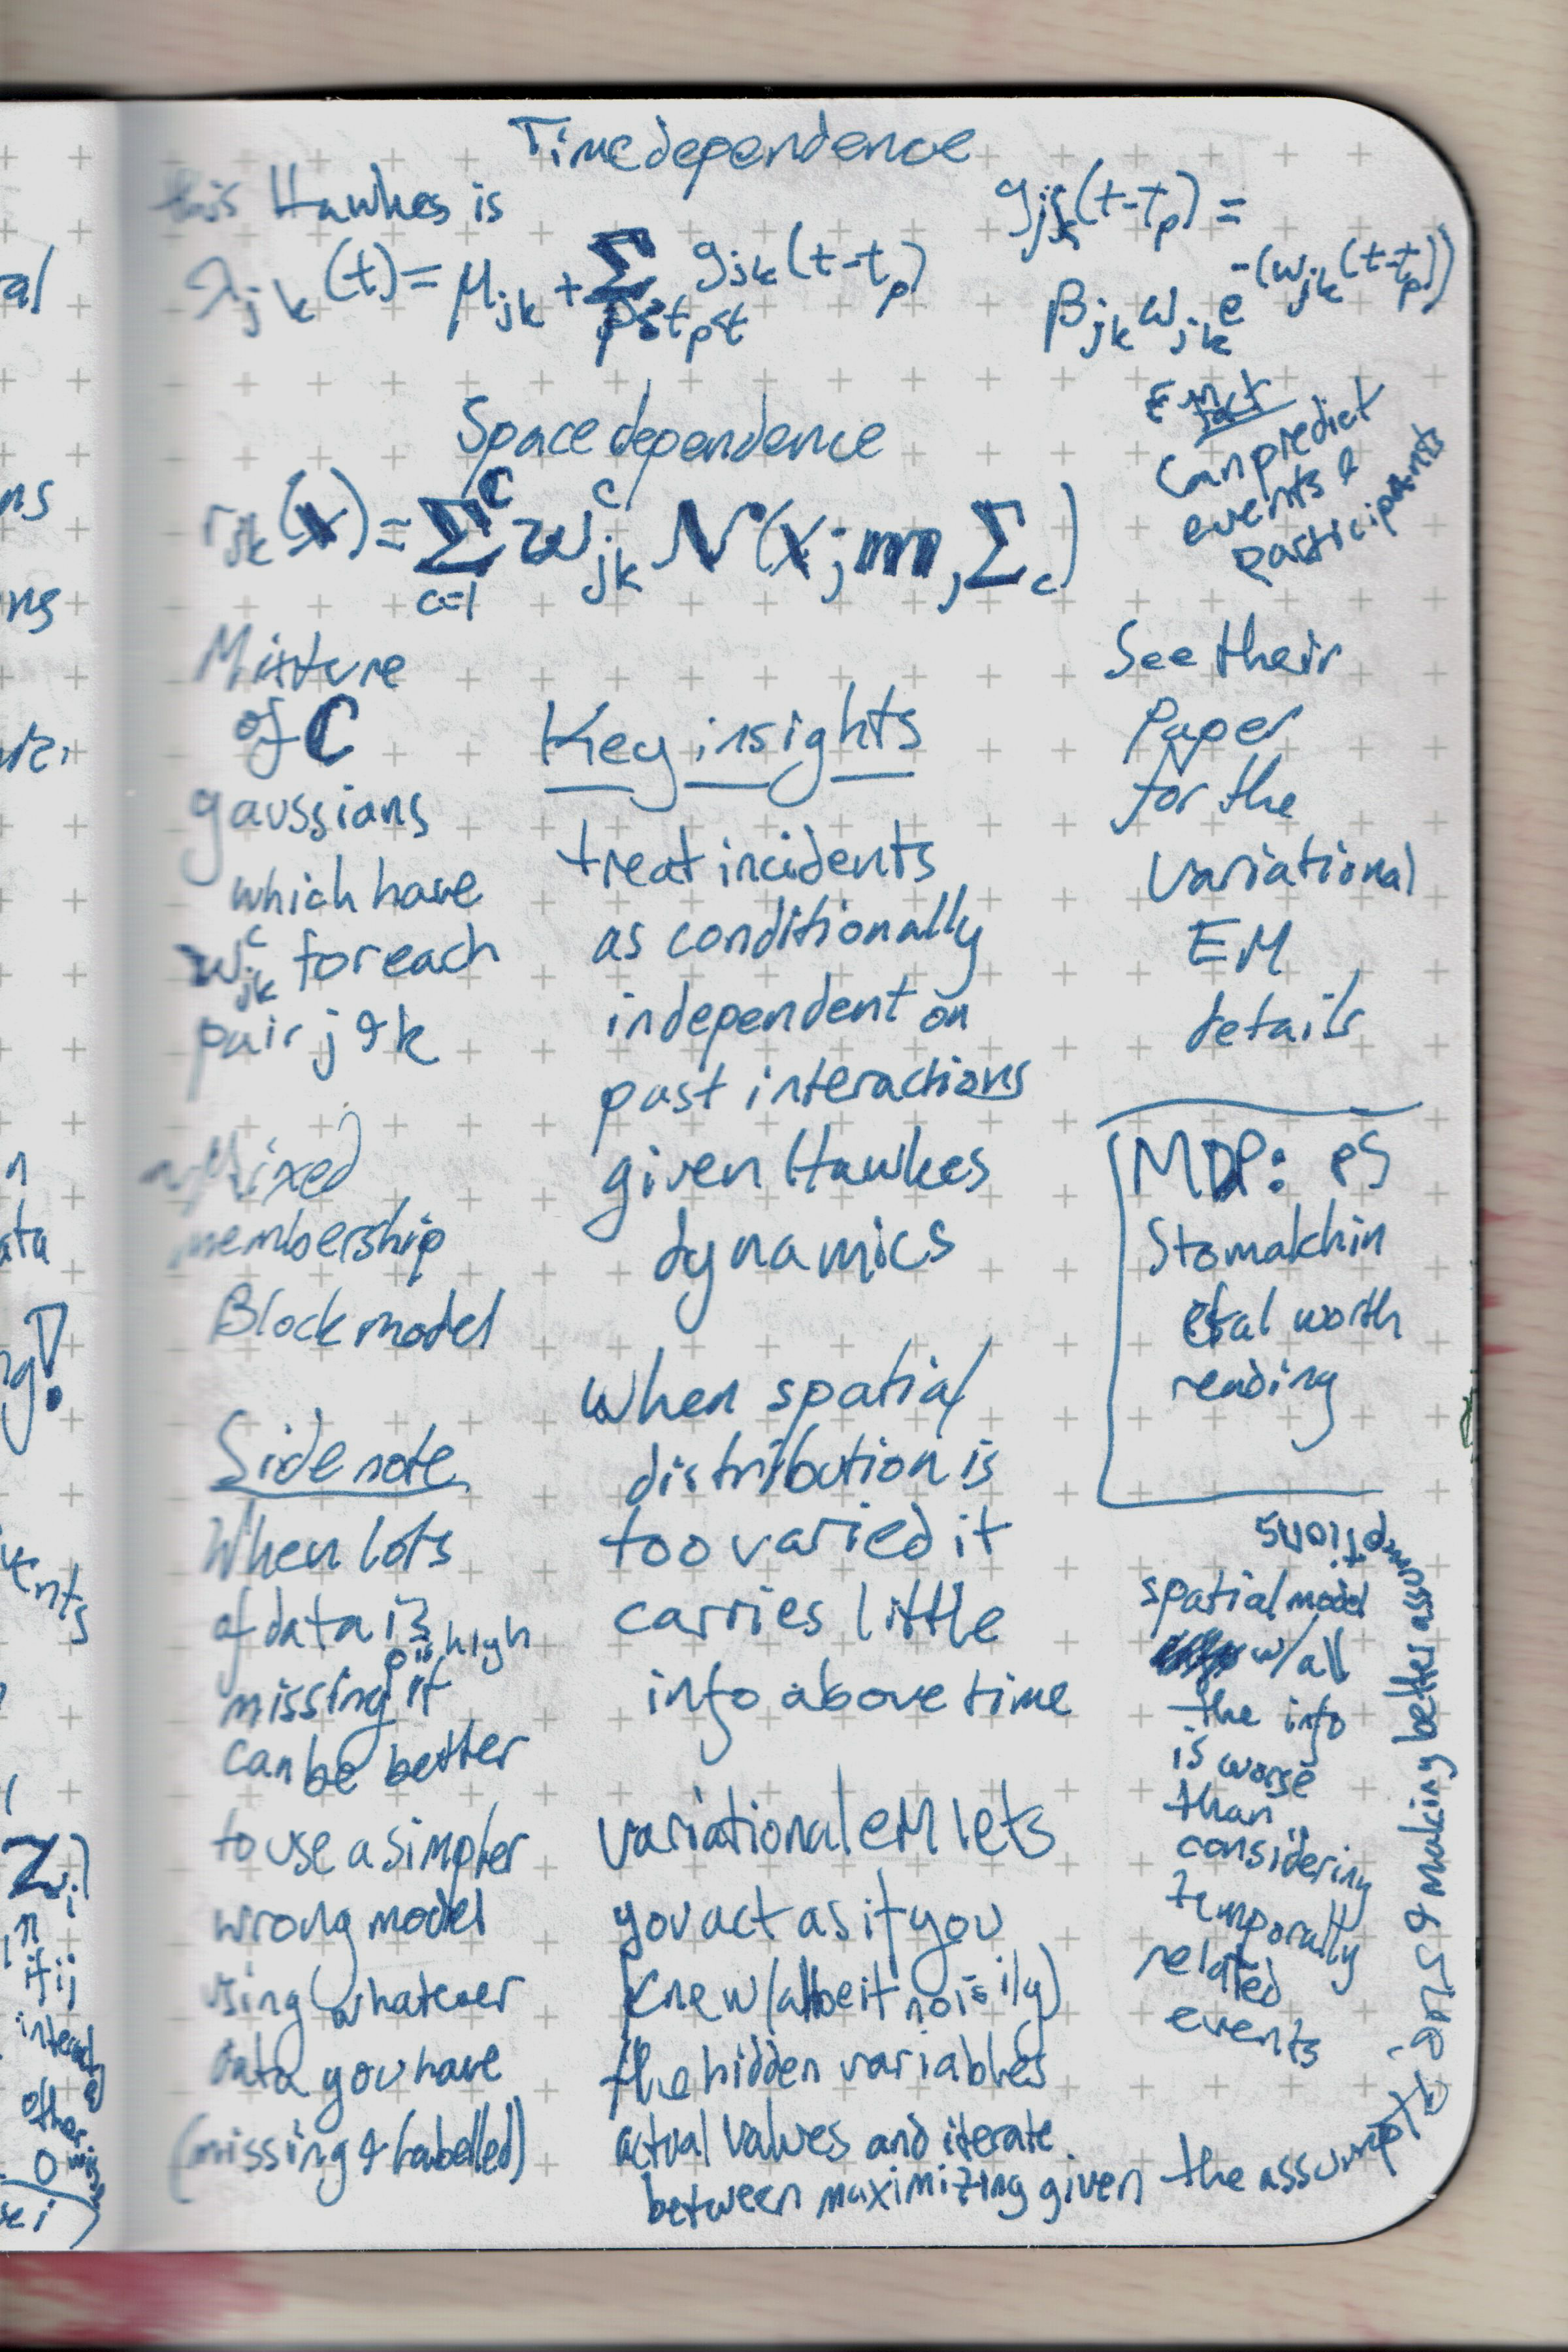 Time dependence
this Hawkes is
λjk(t) = μjk + Σ gjk(t-tp)
p:tp≤t
gjk(t-tp) =
βjk ωjk e^-(ωjk(t-tp))
Space dependence
rjk(x) = Σ_{c=1}^C w^c_jk N(x; m, Σc)
In
fact
Can predict
events &
participants
Mixture
of C
gaussians
which have
w^c_jk for each
pair j & k
Mixed
membership
Block model
Side note
When lots
of data is
is high
missing it
can be better
to use a simpler
wrong model
using whatever
data you have
(missing & labelled)
Key insights
treat incidents
as conditionally
independent on
past interactions
given Hawkes
dynamics
When spatial
distribution is
too varied it
carries little
info above time
variational EM lets
you act as if you
knew (albeit noisily)
the hidden variables
actual values and iterate
between maximizing given the assumptions & making better assumptions
See their
Paper
for the
Variational
EM
details
MDP: PS
Stomakhin
et al worth
reading
spatial model
w/all
the info
is worse
than
considering
temporally
related
events
al
ns
ns
n
ata
ng!
vents
Zi
if ij
interact
0
other
wise